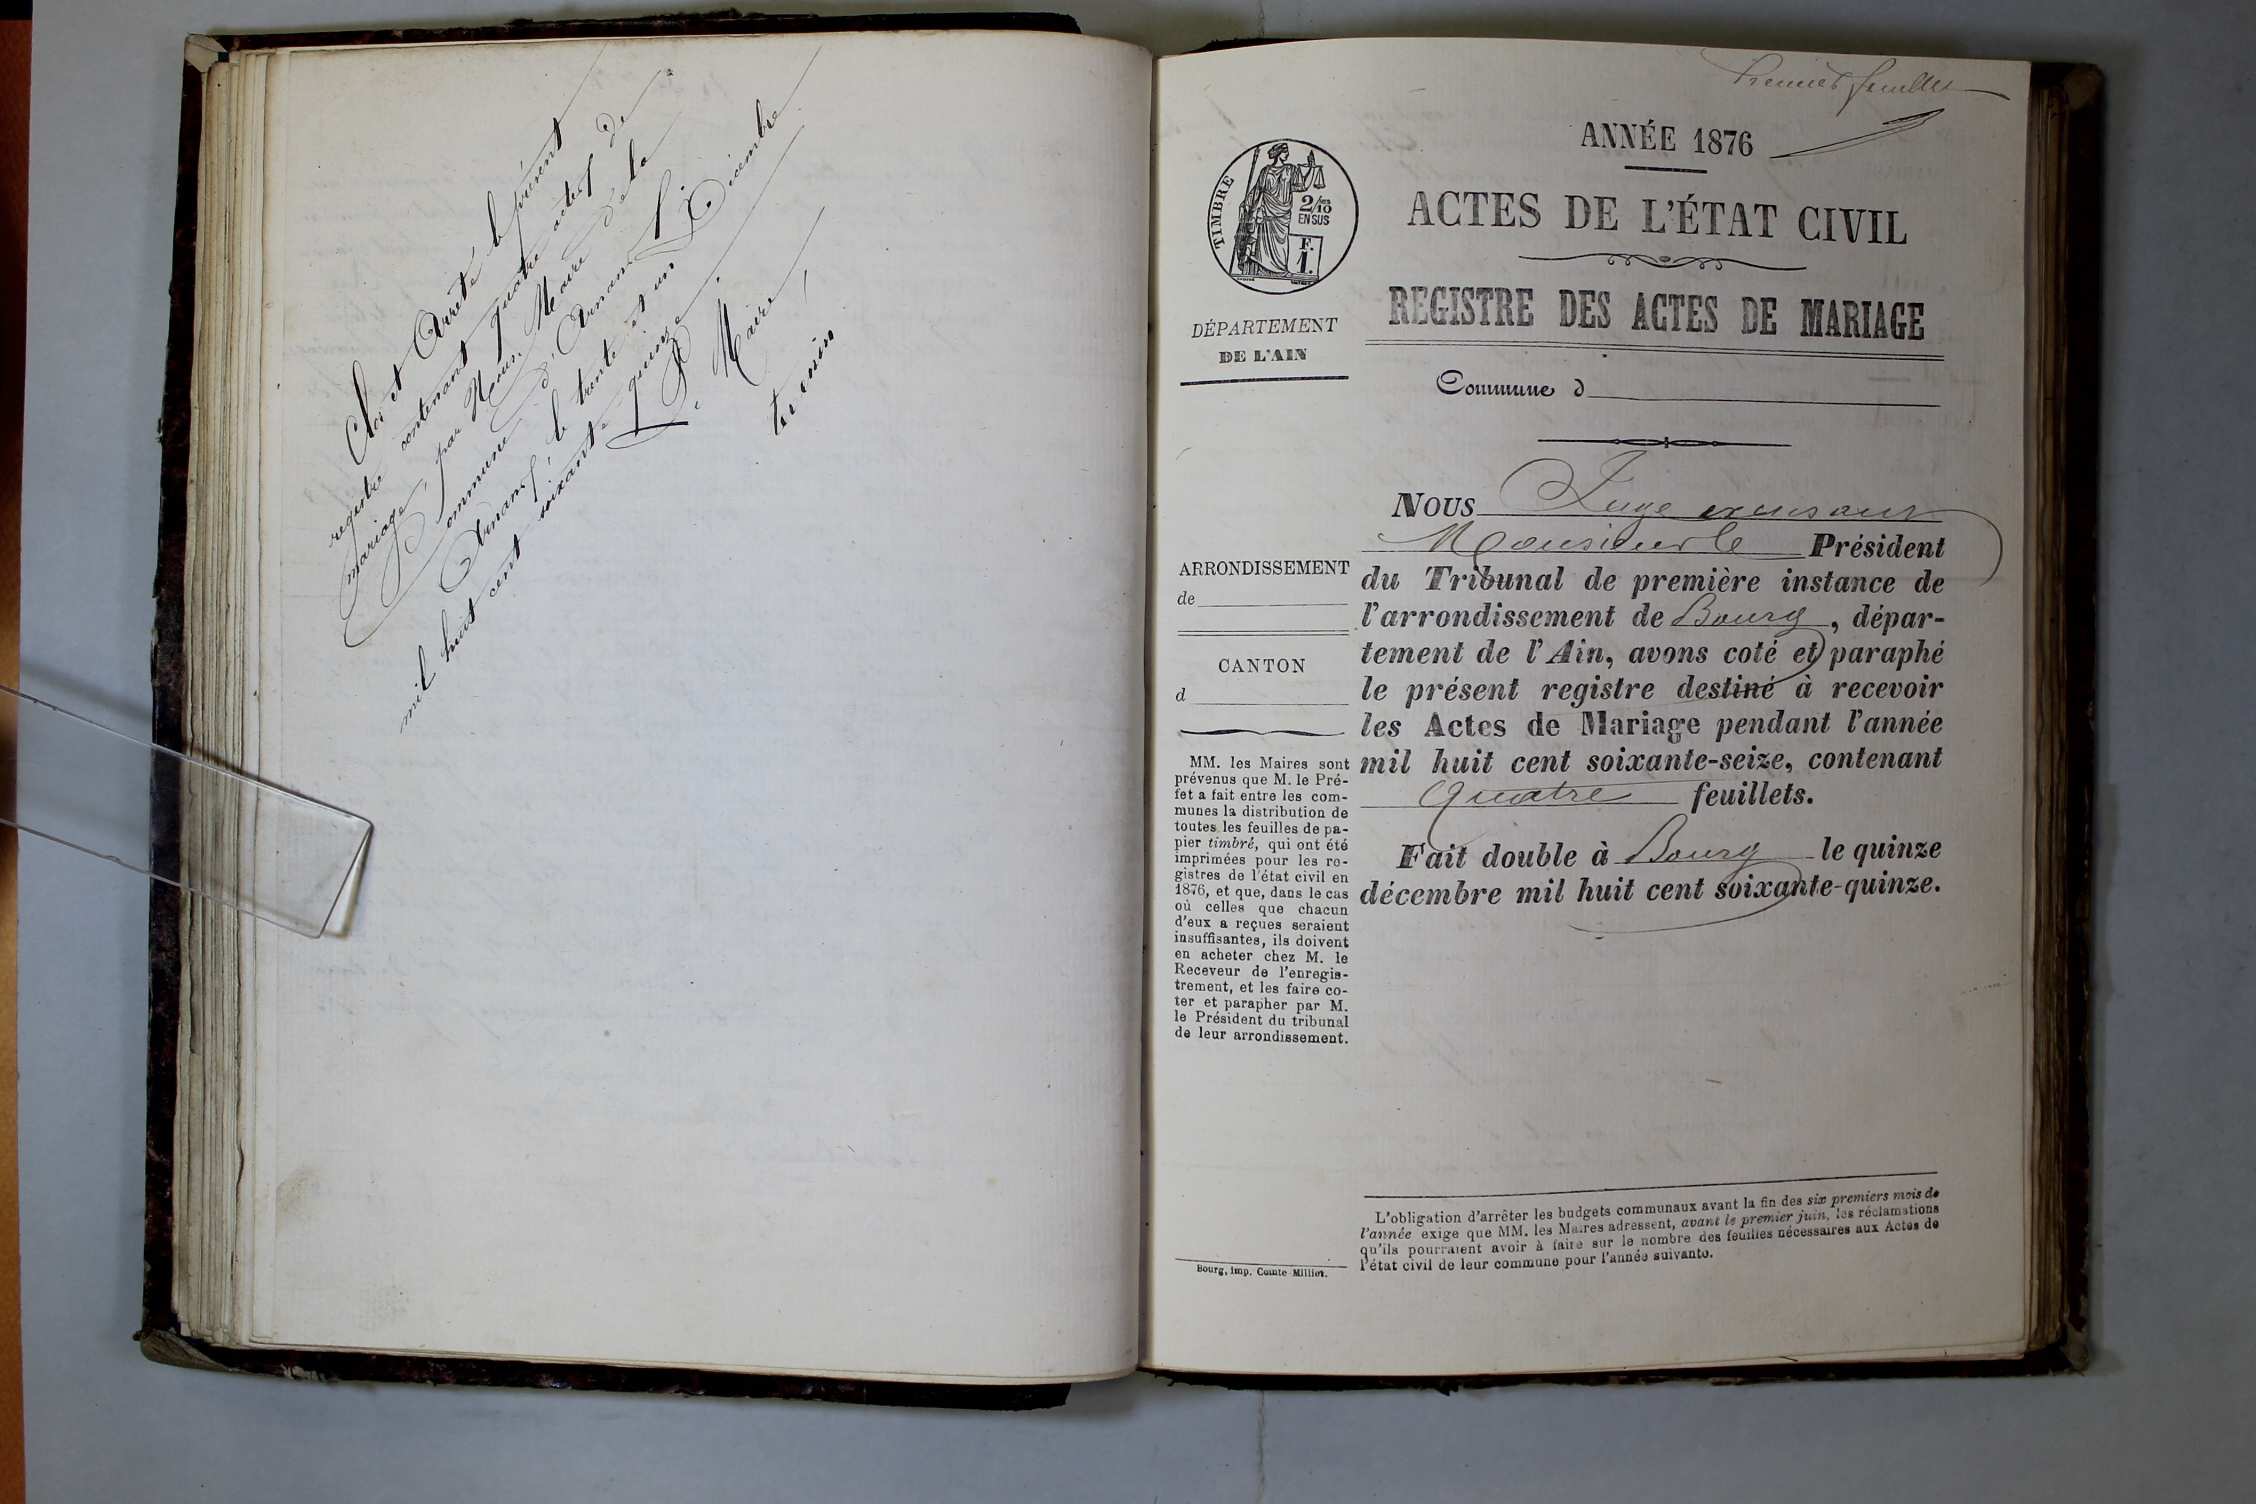 Clos et Arrêté le présent
registre contenant quatre actes de
mariage, par Nous, Maire de la
Commune d'Arnans.
Arnans, le trente et un Décembre
mil huit cent soixante quinze.
Le Maire,
Premier feuillet
ANNÉE 1876
ACTES DE L'ÉTAT CIVIL
REGISTRE DES ACTES DE MARIAGE
Commune d
TIMBRE
2/10
EN SUS
F.
1.
DÉPARTEMENT
DE L'AIN
ARRONDISSEMENT
de
CANTON
d
MM. les Maires sont
prévenus que M. le Pré-
fet a fait entre les com-
munes la distribution de
toutes les feuilles de pa-
pier timbré, qui ont été
imprimées pour les re-
gistres de l'état civil en
1876, et que, dans le cas
où celles que chacun
d'eux a reçues seraient
insuffisantes, ils doivent
en acheter chez M. le
Receveur de l'enregis-
trement, et les faire co-
ter et parapher par M.
le Président du tribunal
de leur arrondissement.
Bourg, imp. Comte-Milliet.
NOUS Juge
Monsieur le Président
du Tribunal de première instance de
l'arrondissement de Bourg, dépar-
tement de l'Ain, avons coté et paraphé
le présent registre destiné à recevoir
les Actes de Mariage pendant l'année
mil huit cent soixante-seize, contenant
Quatre feuillets.
Fait double à Bourg le quinze
décembre mil huit cent soixante-quinze.
L'obligation d'arrêter les budgets communaux avant la fin des six premiers mois de
l'année exige que MM. les Maires adressent, avant le premier juin, les réclamations
qu'ils pourraient avoir à faire sur le nombre des feuilles nécessaires aux Actes de
l'état civil de leur commune pour l'année suivante.